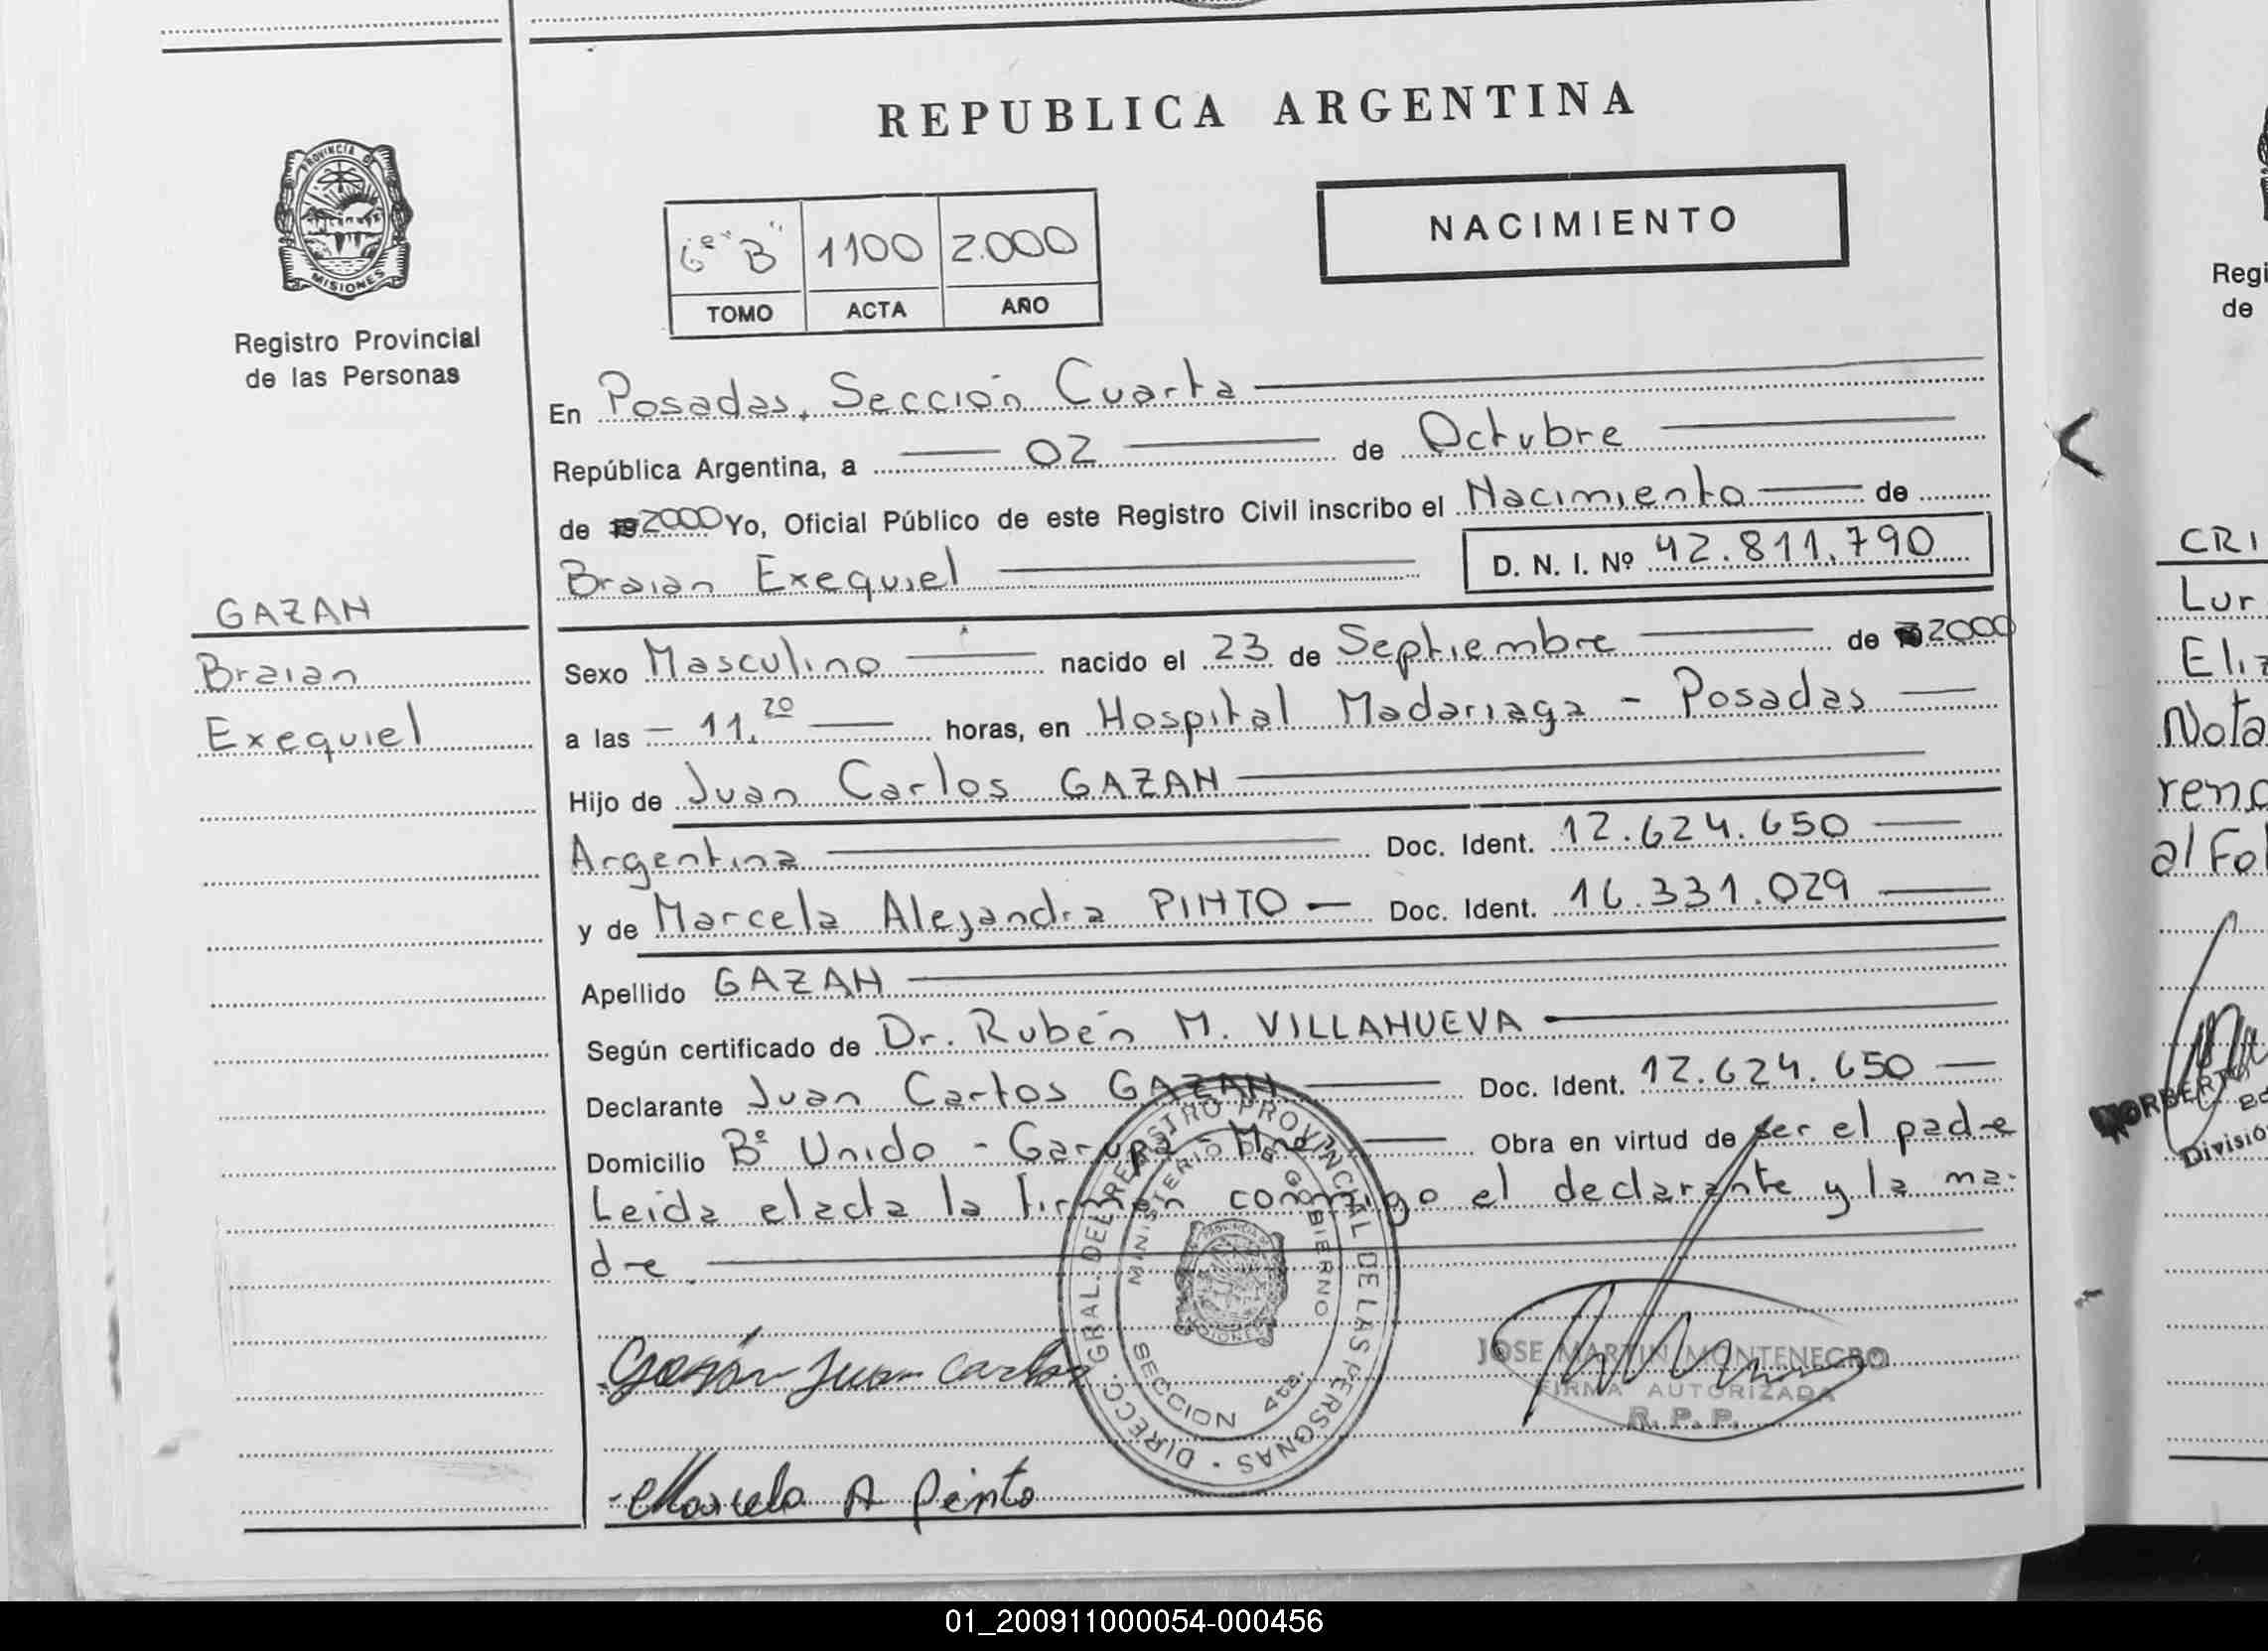 REPUBLICA ARGENTINA
PROVINCIA DE
MISIONES
Registro Provincial
de las Personas
6º "B" 1100 2.000
TOMO ACTA AÑO
NACIMIENTO
En Posadas, Sección Cuarta
República Argentina, a 02 de Octubre
de 2000 Yo, Oficial Público de este Registro Civil inscribo el Nacimiento de
Braian Exequiel D. N. I. Nº 42.811.790
GAZAN
Braian
Exequiel
Sexo Masculino nacido el 23 de Septiembre de 2000
a las - 11.20 horas, en Hospital Madariaga - Posadas
Hijo de Juan Carlos GAZAN
Argentina Doc. Ident. 12.624.650
y de Marcela Alejandra PINTO - Doc. Ident. 16.331.029
Apellido GAZAN
Según certificado de Dr. Rubén M. VILLANUEVA
Declarante Juan Carlos GAZAN Doc. Ident. 12.624.650
Domicilio Bº Unido - Garupa - Mnes Obra en virtud de ser el padre
Leida elacta la firman conmigo el declarante y la ma-
dre
DIRECC. GRAL. DEL REGISTRO PROVINCIAL DE LAS PERSONAS
MINISTERIO DE GOBIERNO
SECCION 4ta.
Gazán Juan Carlos
JOSE MARTIN MONTENEGRO
FIRMA AUTORIZADA
R. P. P.
Marcela A Pinto
Regi
de
CRI
Lur
Eliz
Nota
reno
al Fol
NORBERTO
Divisió
01_200911000054-000456